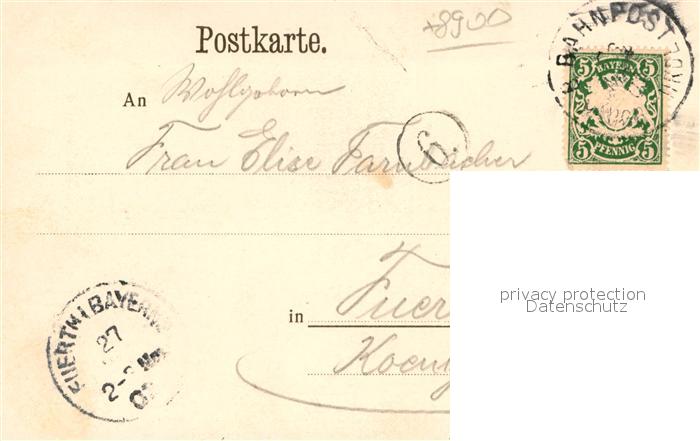 +8900
Postkarte.
BAHNPOST
5 BAYERN 5
5 PFENNIG 5
An Wohlgeborn
6.
Frau Elise Farnbacher
privacy protection
Datenschutz
in Fuer
Koenig
FUERTH I BAYERN
27
2-3 Nm